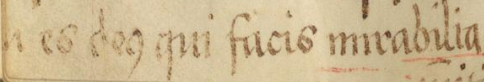 es deꝯ qui facis mirabilia